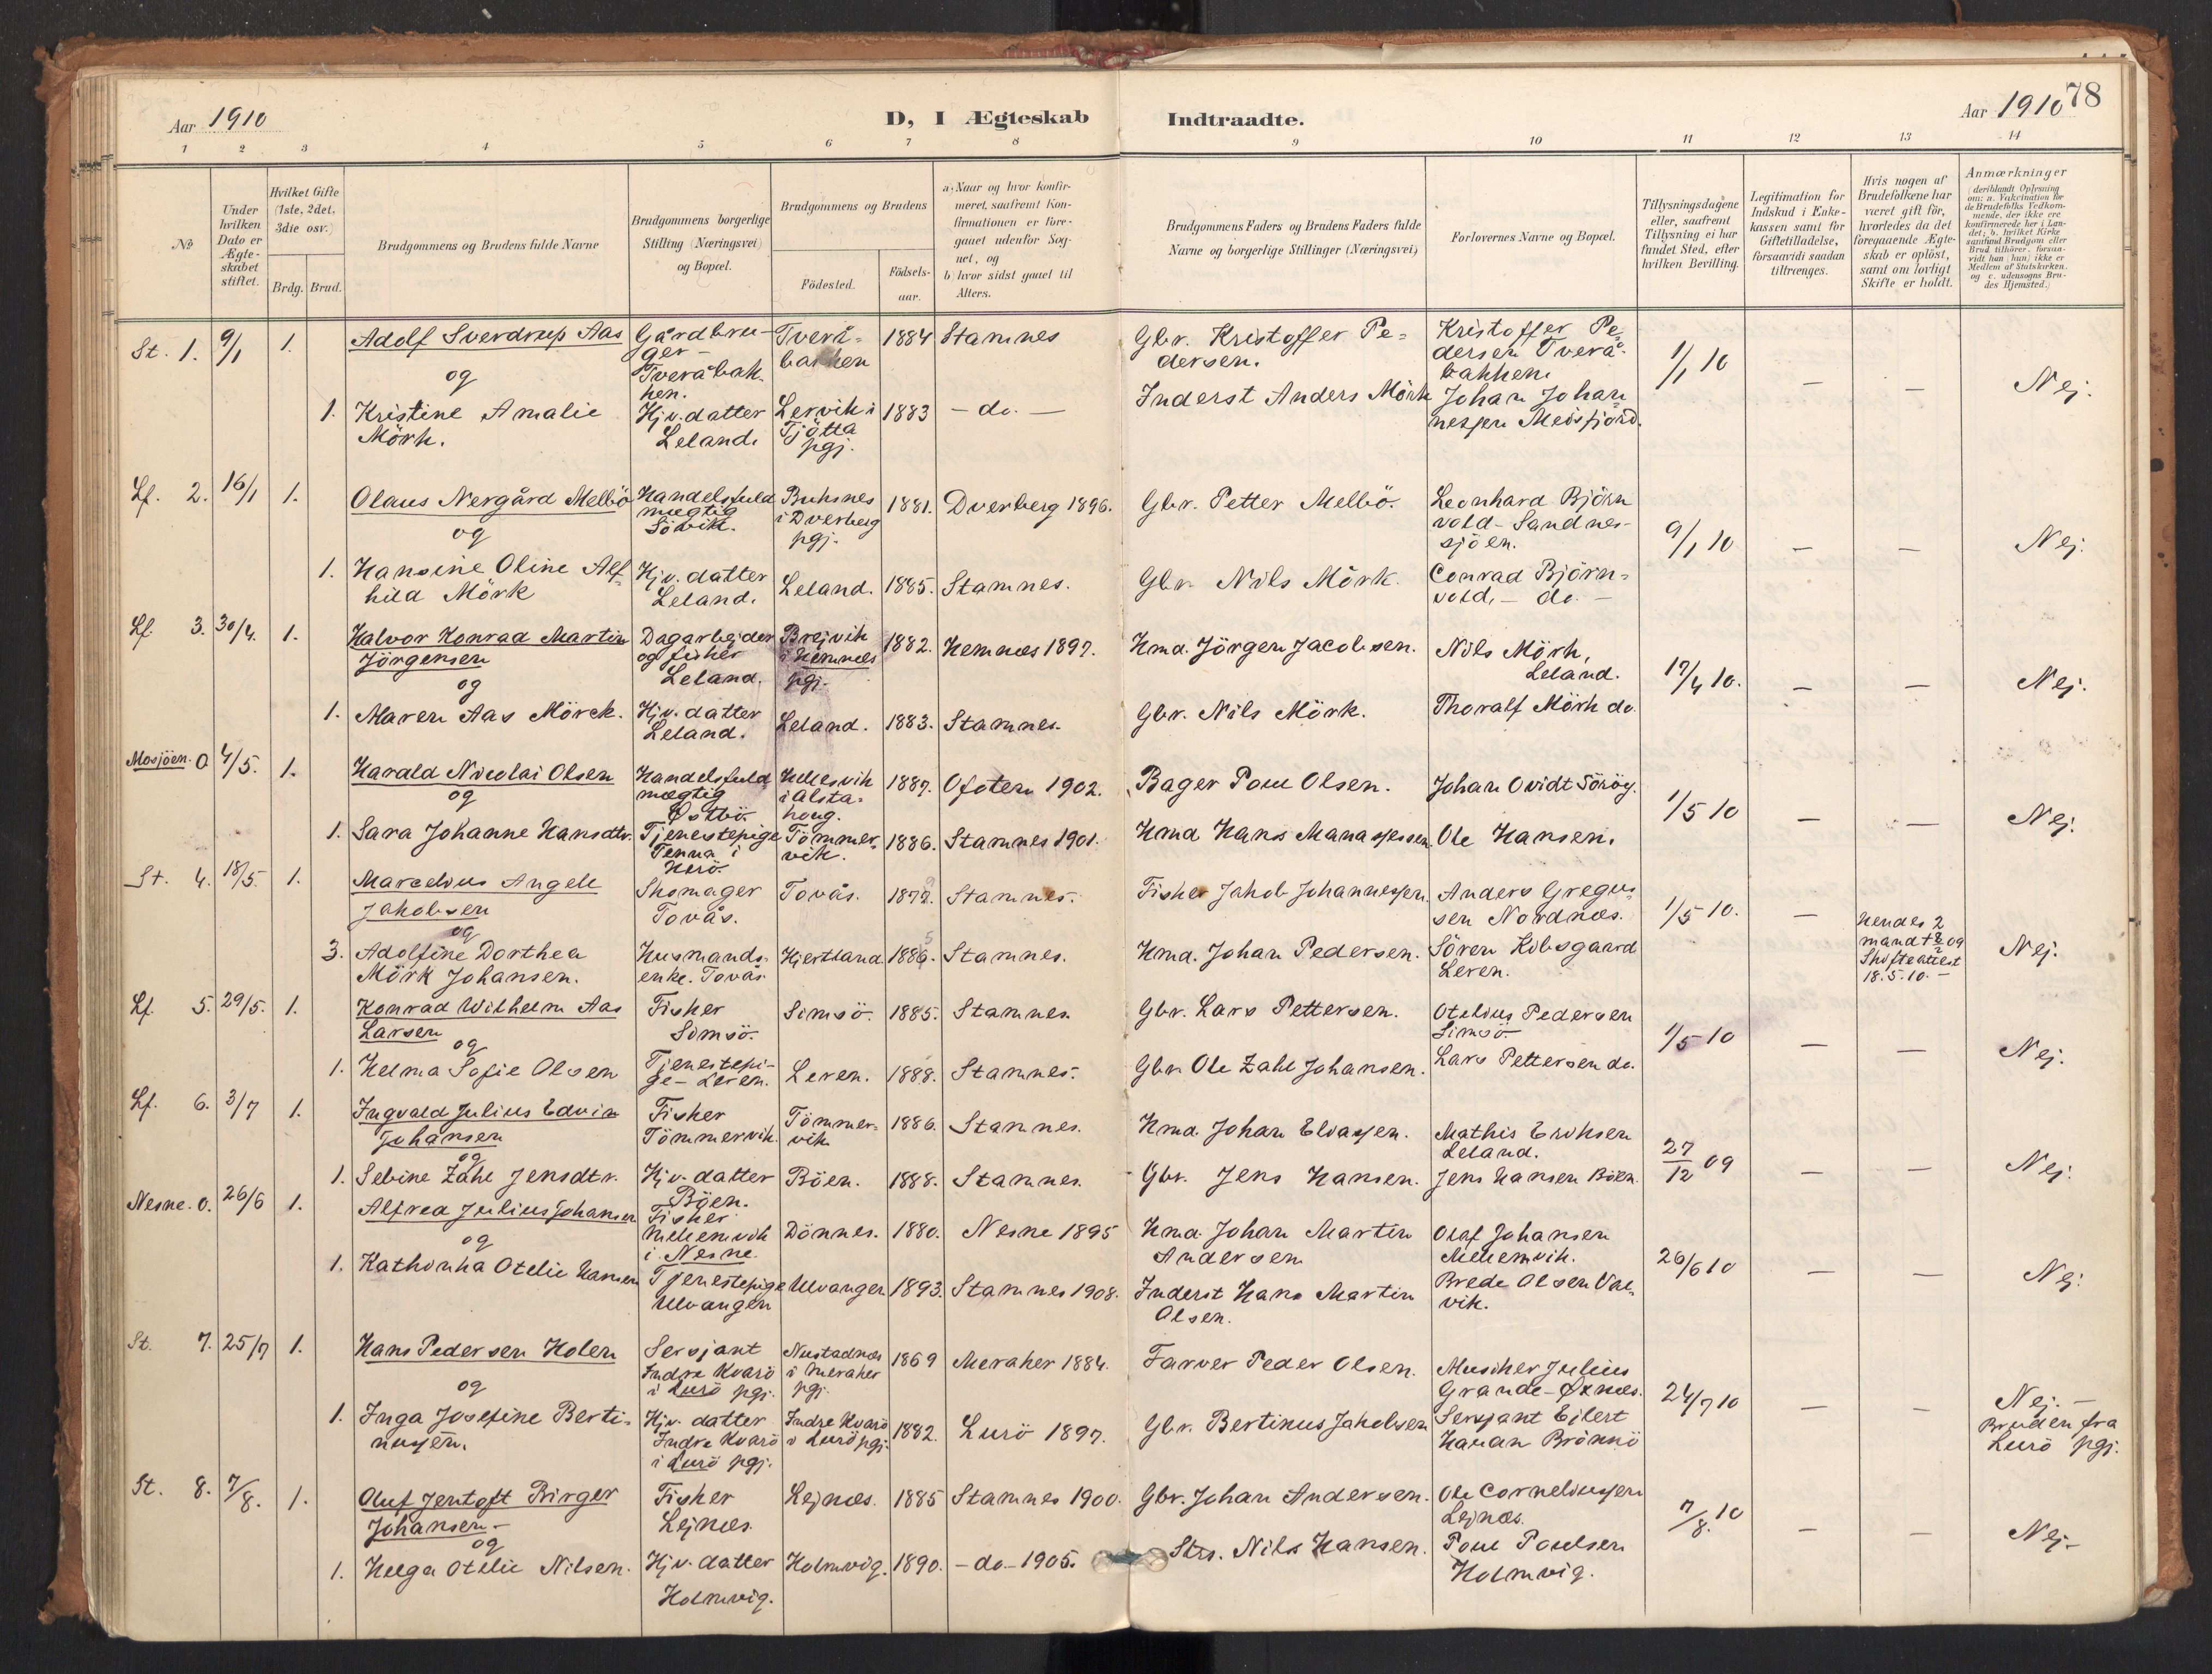 Aar 1910
D, I Ægteskab Indtraadte.
Aar 1910 78
1 2 3 4 5 6 7 8 9 10 11 12 13 14
No
Under hvilken Dato er Ægteskabet stiftet.
Hvilket Gifte (1ste, 2det, 3die osv.)
Brdg. Brud.
Brudgommens og Brudens fulde Navne
Brudgommens borgerlige Stilling (Næringsvei) og Bopæl.
Brudgommens og Brudens
Födested.
Födselsaar.
a) Naar og hvor konfirmeret, saafremt Konfirmationen er foregaaet udenfor Sognet, og
b) hvor sidst gaaet til Alters.
Brudgommens Faders og Brudens Faders fulde Navne og borgerlige Stillinger (Næringsvei)
Forlovernes Navne og Bopæl.
Tillysningsdagene eller, saafremt Tillysning ei har fundet Sted, efter hvilken Bevilling.
Legitimation for Indskud i Enkekassen samt for Giftetilladelse, forsaavidt saadan tiltrænges.
Hvis nogen af Brudefolkene har været gift för, hvorledes da det foregaaende Ægteskab er oplöst, samt om lovligt Skifte er holdt.
Anmærkninger
(deriblandt Oplysning om: a. Vakcination for de Brudefolks Vedkommende, der ikke ere konfirmerede her i Landet; b. hvilket Kirkesamfund Brudgom eller Brud tilhörer, forsaavidt han (hun) ikke er Medlem af Statskirken, og c. udensogns Brudes Hjemsted.)
St. 1. 9/1 1. Adolf Sverdrup Aas Gårdbruger - Tveråbakken. Tveråbakken 1884 Stamnes Gbr. Kristoffer Pedersen. Kristoffer Pedersen Tveråbakken. 1/1 10 — — Nej.
og
1. Kristine Amalie Mörk. Hjv. datter Leland. Lervik i Tjötta pgj. 1883 — do. — Inderst Anders Mörk Johan Johannessen Meisfjord.
Lf. 2. 16/1 1. Olaus Nergård Melbö Handelsfuldmægtig Sövik. Buksnes i Dverberg pgj. 1881. Dverberg 1896. Gbr. Petter Melbö. Leonhard Björnvold - Sandnessjöen. 9/1 10 — — Nej.
og
1. Hansine Oline Alfhild Mörk Hjv. datter Leland. Leland. 1885. Stamnes. Gbr. Nils Mörk. Conrad Björnvold. — do. —
Lf. 3. 30/4. 1. Halvor Konrad Martin Jörgensen Dagarbejder og fisker Leland. Brejvik i Hemnes pgj. 1882. Hemnes 1897. Hmd. Jörgen Jacobsen. Nils Mörk, Leland. 17/4 10. — — Nej.
og
1. Maren Aas Mörck. Hjv. datter Leland. Leland. 1883. Stamnes. Gbr. Nils Mörk. Thoralf Mörk do.
Mosjöen. 0 4/5. 1. Harald Nicolai Olsen Handelsfuldmægtig Østbö. i Alstahoug. 1887. Ofoten 1902. Bager Poul Olsen. Johan Ovidt Söröy. 1/5 10 — — Nej.
og
1. Sara Johanne Hansdtr. Tjenestepige Tenna i Herö. Tömmervik. 1886. Stamnes 1901. Hmd Hans Manassessen. Ole Hansen.
St. 4. 18/5. 1. Marcelius Angell Jakobsen Skomager Tovås. Tovås. 1879. Stamnes. Fisker Jakob Johannessen. Anders Gregussen Nordnæs. 1/5 10. —
og
3. Adolfine Dorthea Mörk Johansen. Husmandsenke. Tovås. Hjertland 1885. Stamnes. Hmd. Johan Pedersen. Sören Kobsgaard Leren. Hendes 2 mand † 8/2 09 Skifteattest 18.5.10. — Nej.
Lf. 5. 29/5. 1. Konrad Wilhelm Aas Larsen Fisker Simsö. Simsö. 1885. Stamnes. Gbr. Lars Pettersen. Otelius Pedersen Simsö. 1/5 10 — — Nej.
og
1. Helma Sofie Olsen Tjenestepige - Leren. Leren. 1888. Stamnes. Gbr. Ole Zahl Johansen. Lars Pettersen do.
Lf. 6. 3/7 1. Ingvald Julius Edvin Johansen Fisker Tömmervik. Tömmervik 1886. Stamnes. Hmd. Johan Eliassen. Mathis Eriksen Leland. 27/12 09 — — Nej.
og
1. Sebine Zahl Jensdtr. Hjv. datter Böen. Böen. 1888. Stamnes. Gbr. Jens Hansen. Jens Hansen Böen.
Nesne. 0. 26/6 1. Alfred Julius Johansen Fisker i Nesne. Dönnes. 1880. Nesne 1895 Hmd. Johan Martin Andersen Olaf Johansen 26/6 10 — — Nej.
og
1. Kathinka Otelie Hansen Tjenestepige Ulvangen Ulvangen 1893. Stamnes 1908. Inderst Hans Martin Olsen. Brede Olsen Valvik.
St. 7. 25/7 1. Hans Pedersen Holen Sersjant Indre Kvarö i Lurö pgj. Nustadnes i Meraker pgj. 1869 Meraker 1884. Farver Peder Olsen. Musiker Julius Grande - Øxnes. 24/7 10 — — Nej. —
og
1. Inga Josefine Bertinussen. Hjv. datter Indre Kvarö i Lurö pgj. Indre Kvarö i Lurö pgj. 1882. Lurö 1897. Gbr. Bertinus Jakobsen Sersjant Eilert Hanan Brönnö Bruden fra Lurö pgj.
St. 8. 7/8. 1. Oluf Jentoft Birger Johansen — Fisker Lejnæs. Lejnæs. 1885 Stamnes 1900. Gbr. Johan Andersen. Ole Corneliussen Lejnæs. 7/8. 10 — — Nej —
og
1. Helga Otelie Nilsen. Hjv. datter Holmvig. Holmvig. 1890. — do — 1905. Strs. Nils Hansen. Poul Poulsen Holmvig.